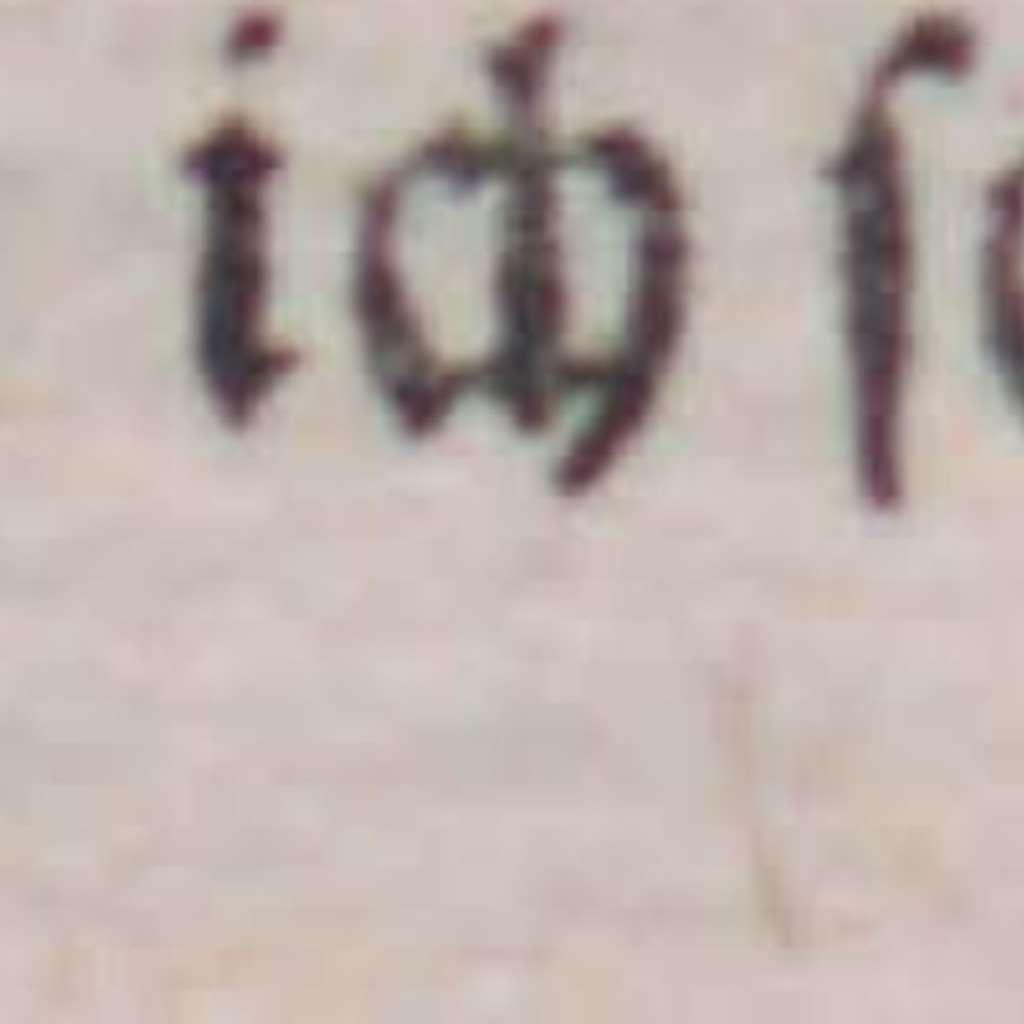 ich ſ